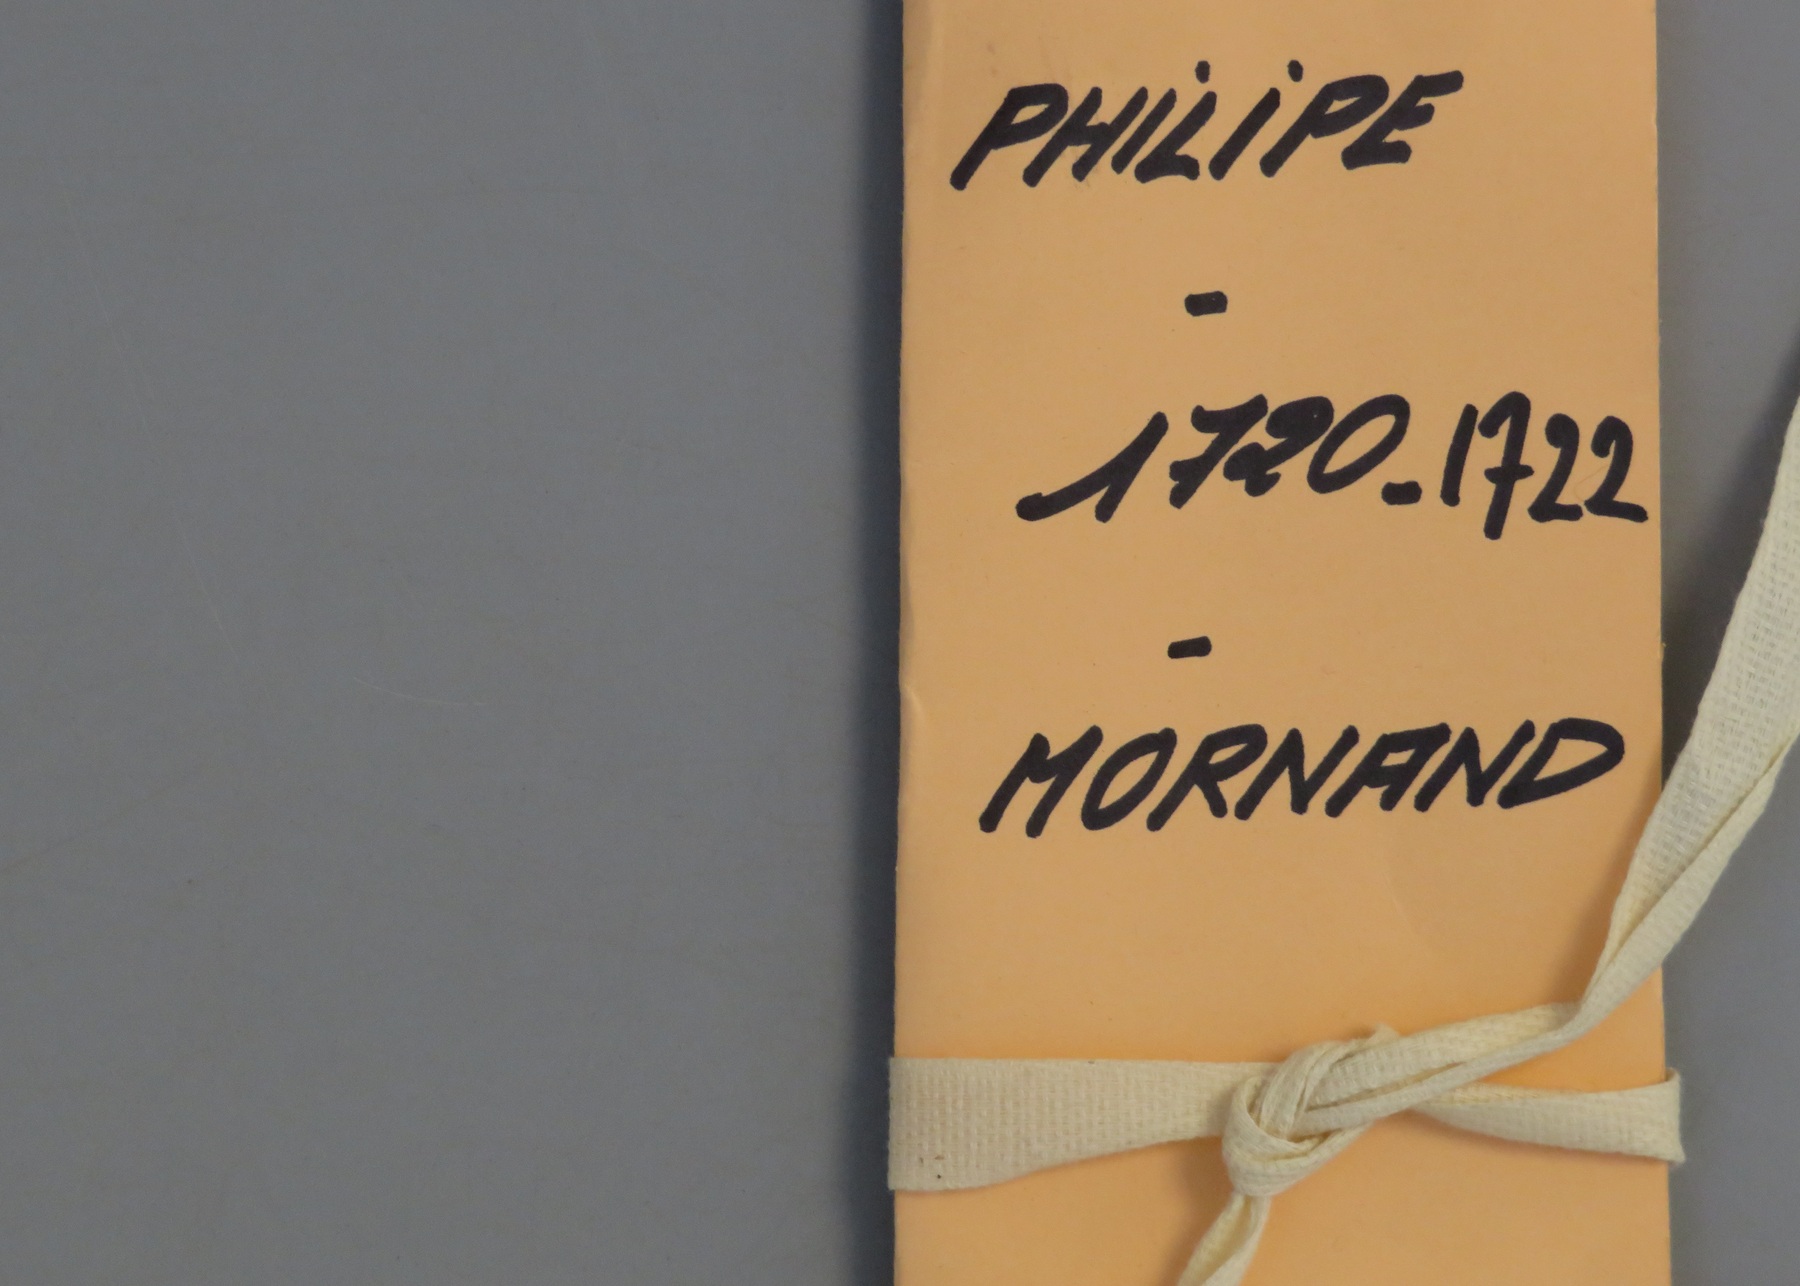 PHILIPE
-
1720-1722
-
MORNAND